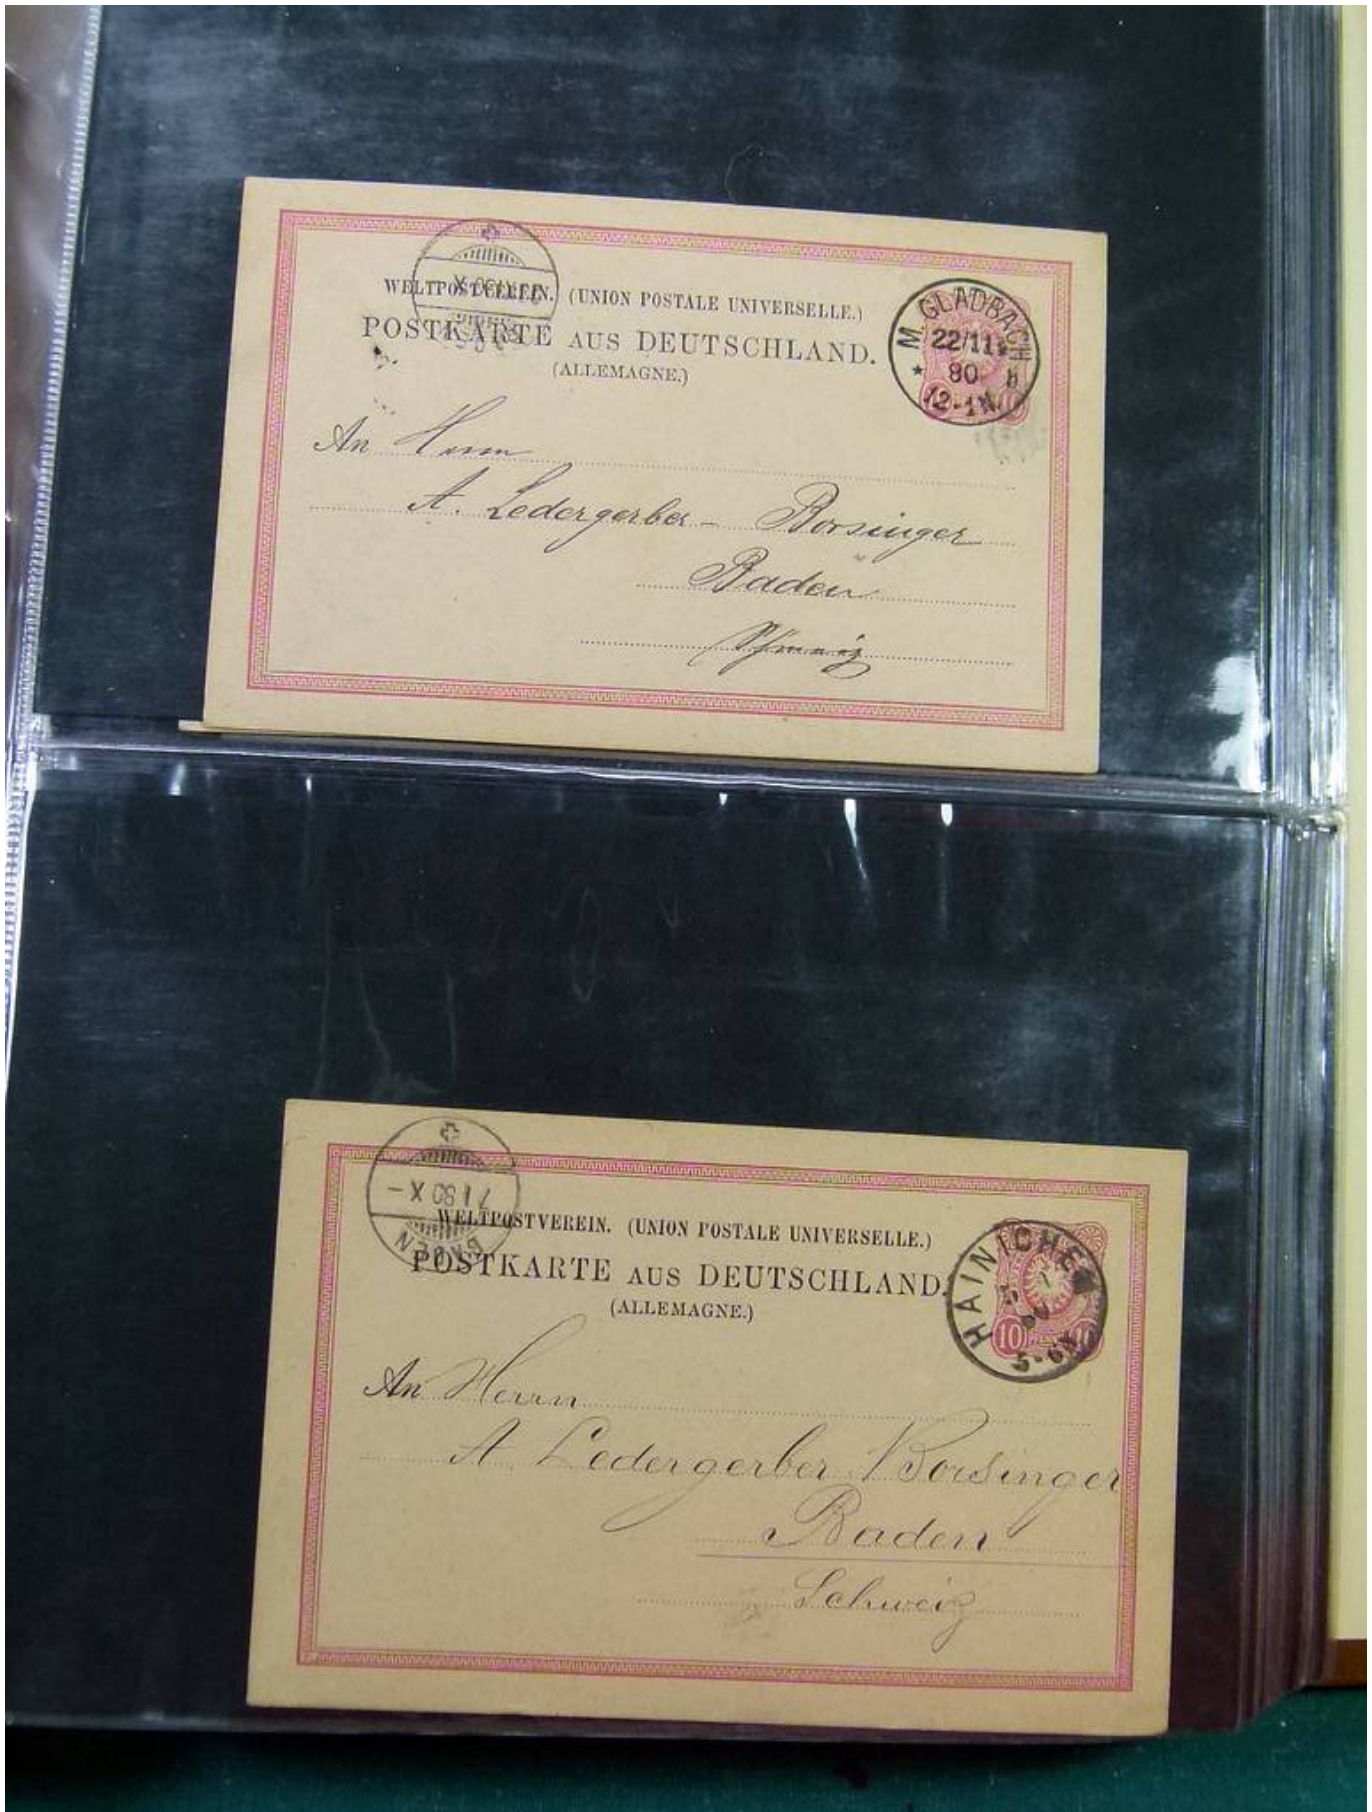 WELTPOSTVEREIN. (UNION POSTALE UNIVERSELLE.)
POSTKARTE AUS DEUTSCHLAND.
(ALLEMAGNE.)
M. GLADBACH
22/11
80
12-1N.
An Herrn
A. Ledergerber - Borsinger
Baden
Schweiz
71 80 X -
BADEN
WELTPOSTVEREIN. (UNION POSTALE UNIVERSELLE.)
POSTKARTE AUS DEUTSCHLAND.
(ALLEMAGNE.)
HAINICHEN
5-6N
10
An Herrn
A. Ledergerber Borsinger
Baden
Schweiz